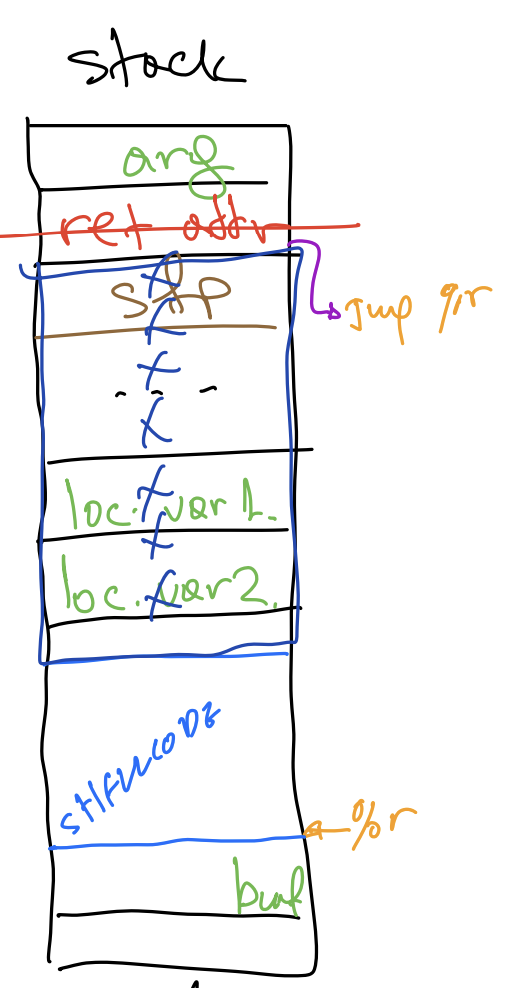 stack
arg
ret addr
sfp
Jmp %r
X
X
X
- - -
X
X
loc. var 1.
X
loc. var 2.
X
SHELLCODE
%r
buf